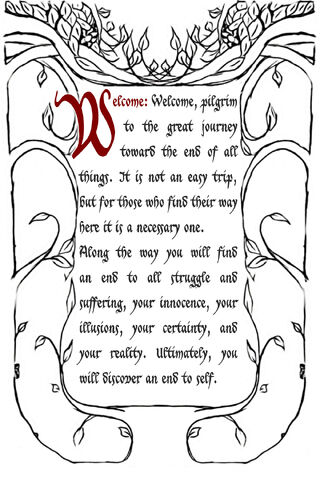 Welcome: Welcome, pilgrim
to the great journey
toward the end of all
things. It is not an easy trip,
but for those who find their way
here it is a necessary one.
Along the way you will find
an end to all struggle and
suffering, your innocence, your
illusions, your certainty, and
your reality. Ultimately, you
will discover an end to self.